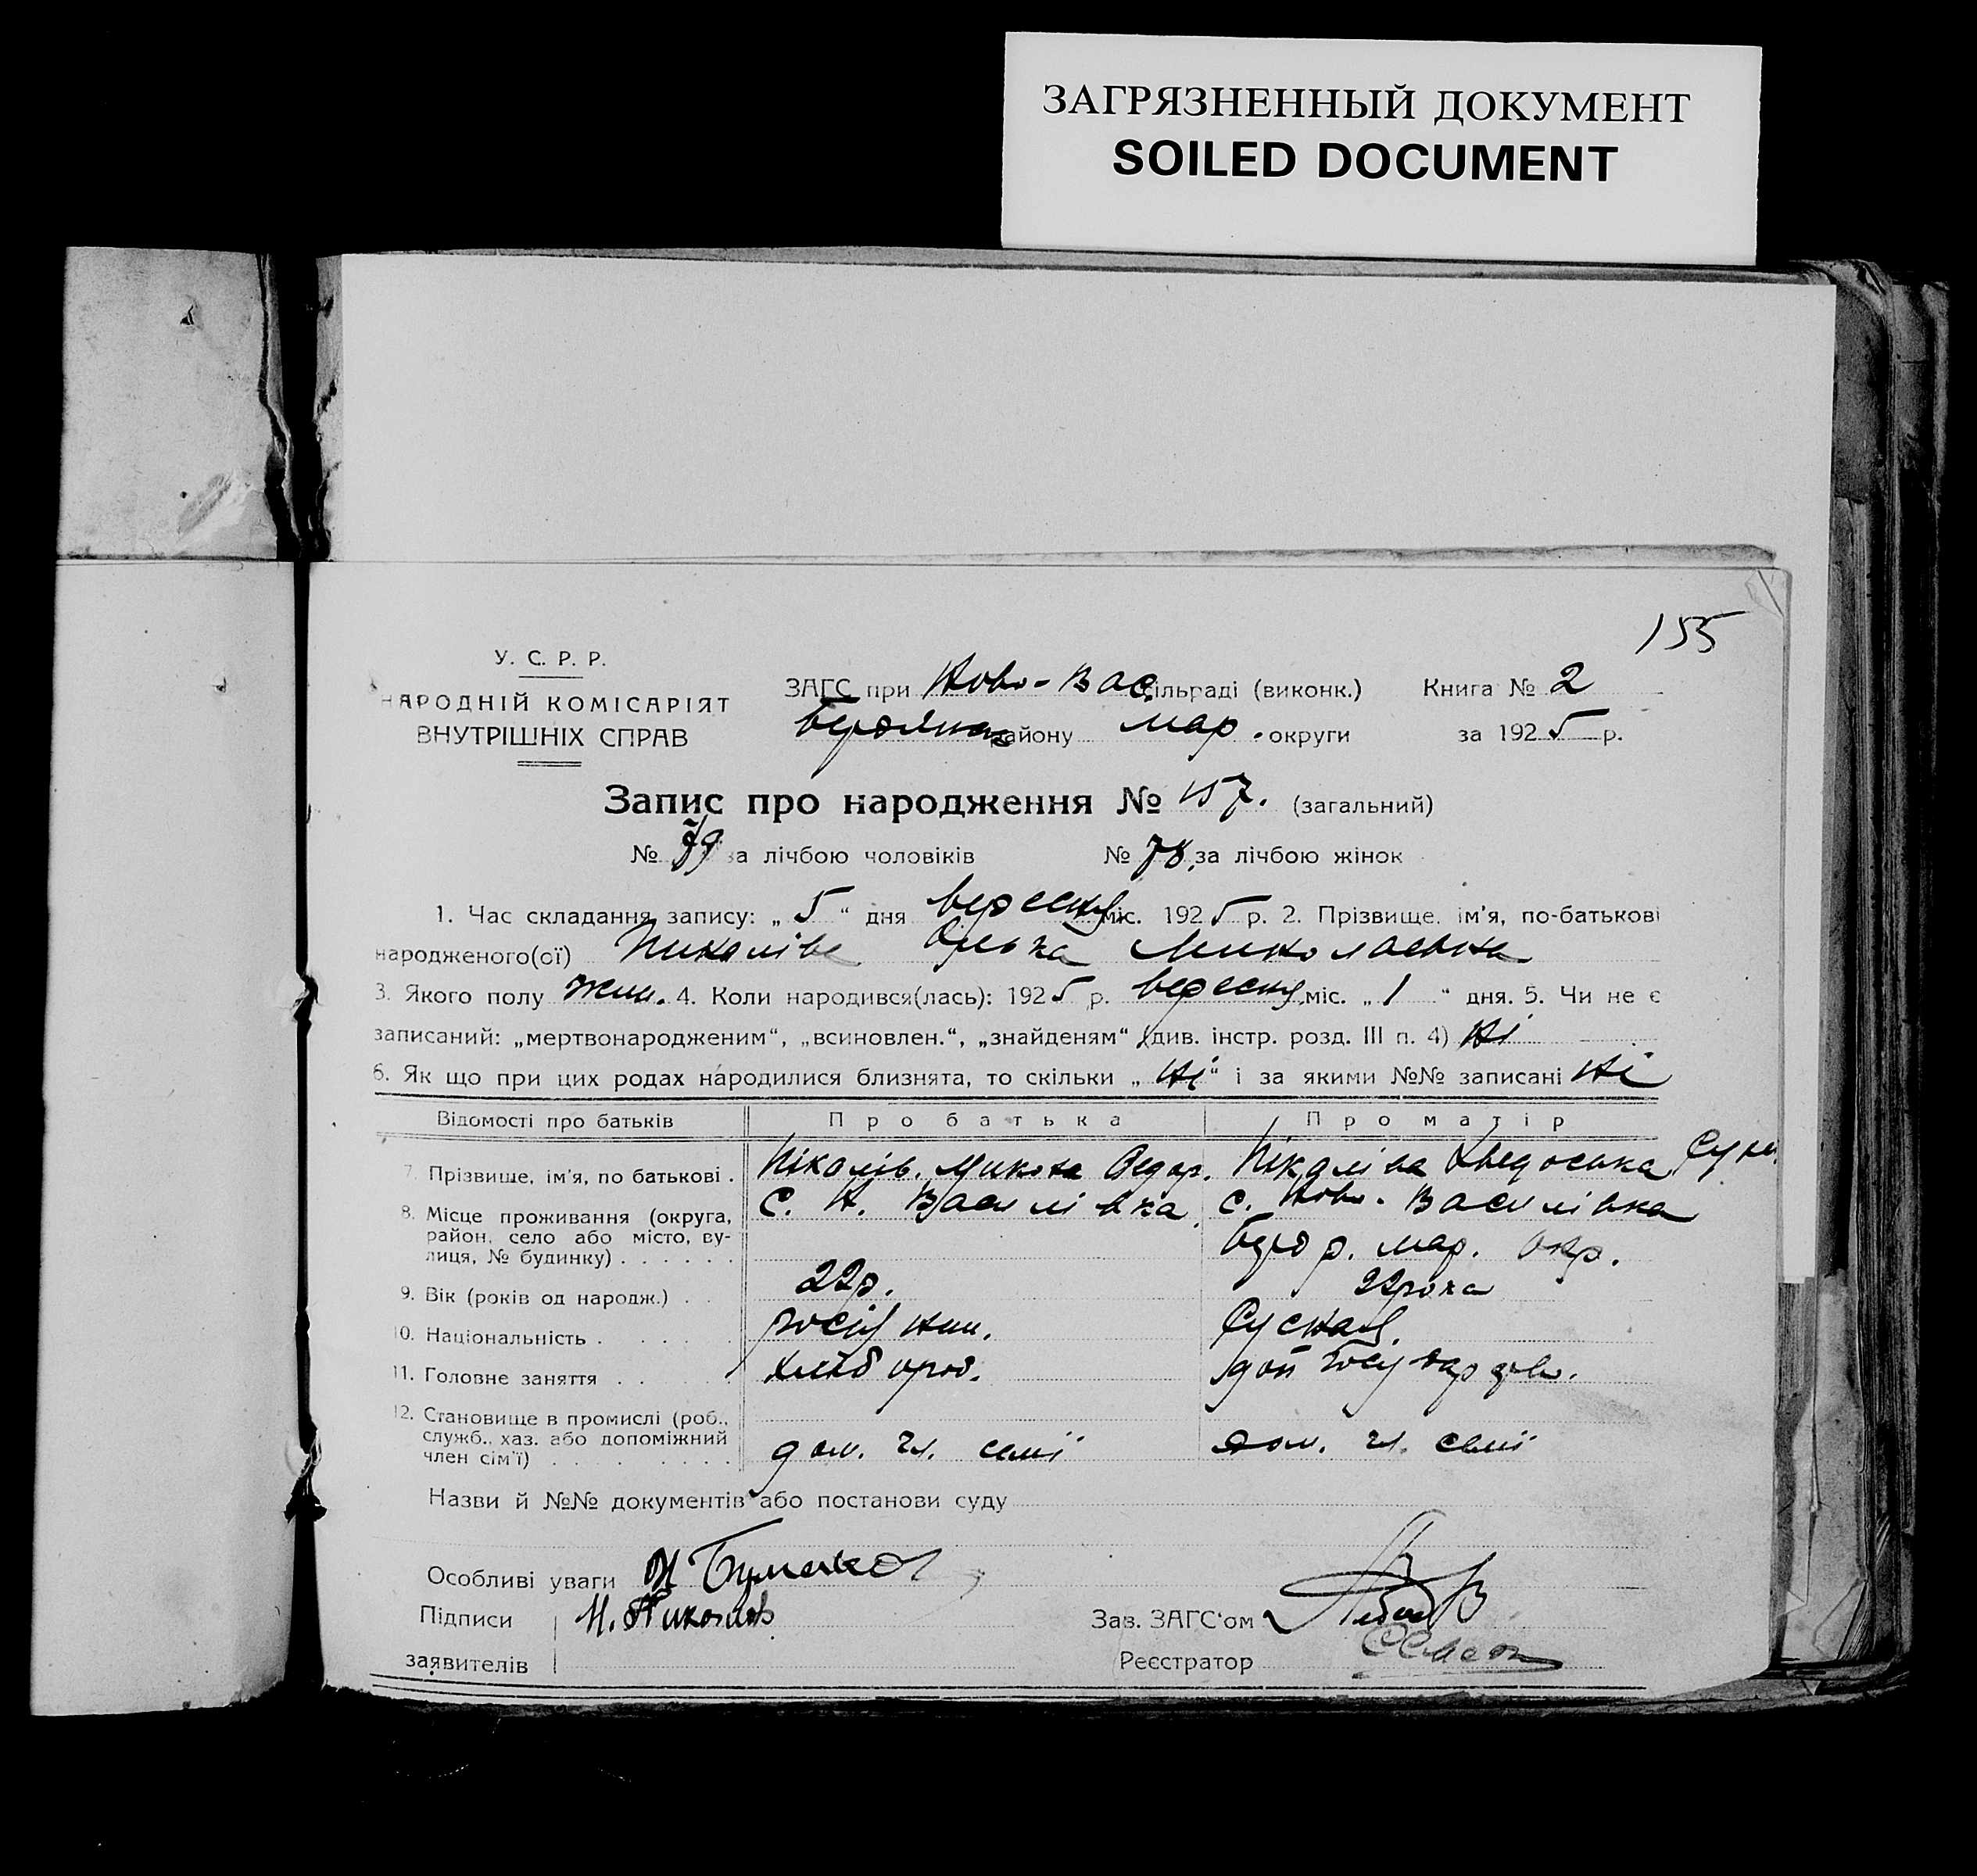 ЗАГРЯЗНЕННЫЙ ДОКУМЕНТ
SOILED DOCUMENT
155
У. С. Р. Р.
НАРОДНІЙ КОМІСАРІЯТ
ВНУТРІШНІХ СПРАВ
ЗАГС при Ново-Вас. сільраді (виконк.) Книга № 2
району мар. округи за 1925 р.
Запис про народження № 157. (загальний)
№ 79 за лічбою чоловіків № 78. за лічбою жінок
1. Час складання запису: „ 5 “ дня вересня міс. 1925 р. 2. Прізвище, ім'я, по-батькові
народженого(ої) Николіва Ольга Миколаевна
3. Якого полу жін. 4. Коли народився(лась): 1925 р. вересня міс. „ 1 “ дня. 5. Чи не є
записаний: „мертвонародженим“, „всиновлен.“, „знайденям“ (див. інстр. розд. III п. 4) Ні
6. Як що при цих родах народилися близнята, то скільки „ Ні “ і за якими №№ записані Ні
Відомості про батьків Про батька Про матір
7. Прізвище, ім'я, по батькові . Ніколів. Микола Федор. Ніколіва
8. Місце проживання (округа, район, село або місто, ву-
лиця, № будинку) . . . . . . С. Н. Василівка с. Ново-Василівка
мар. окр.
9. Вік (років од народж.) . . 22 р. 22 рока
10. Національність . . . . .
11. Головне заняття . . . . хлібороб.
12. Становище в промислі (роб.,
служб., хаз. або допоміжний
член сім'ї) . . . . . . . . . дом. чл. семї дом. чл. семї
Назви й №№ документів або постанови суду
Особливі уваги
Підписи Н. Николов Зав. ЗАГС'ом
заявителів Реєстратор